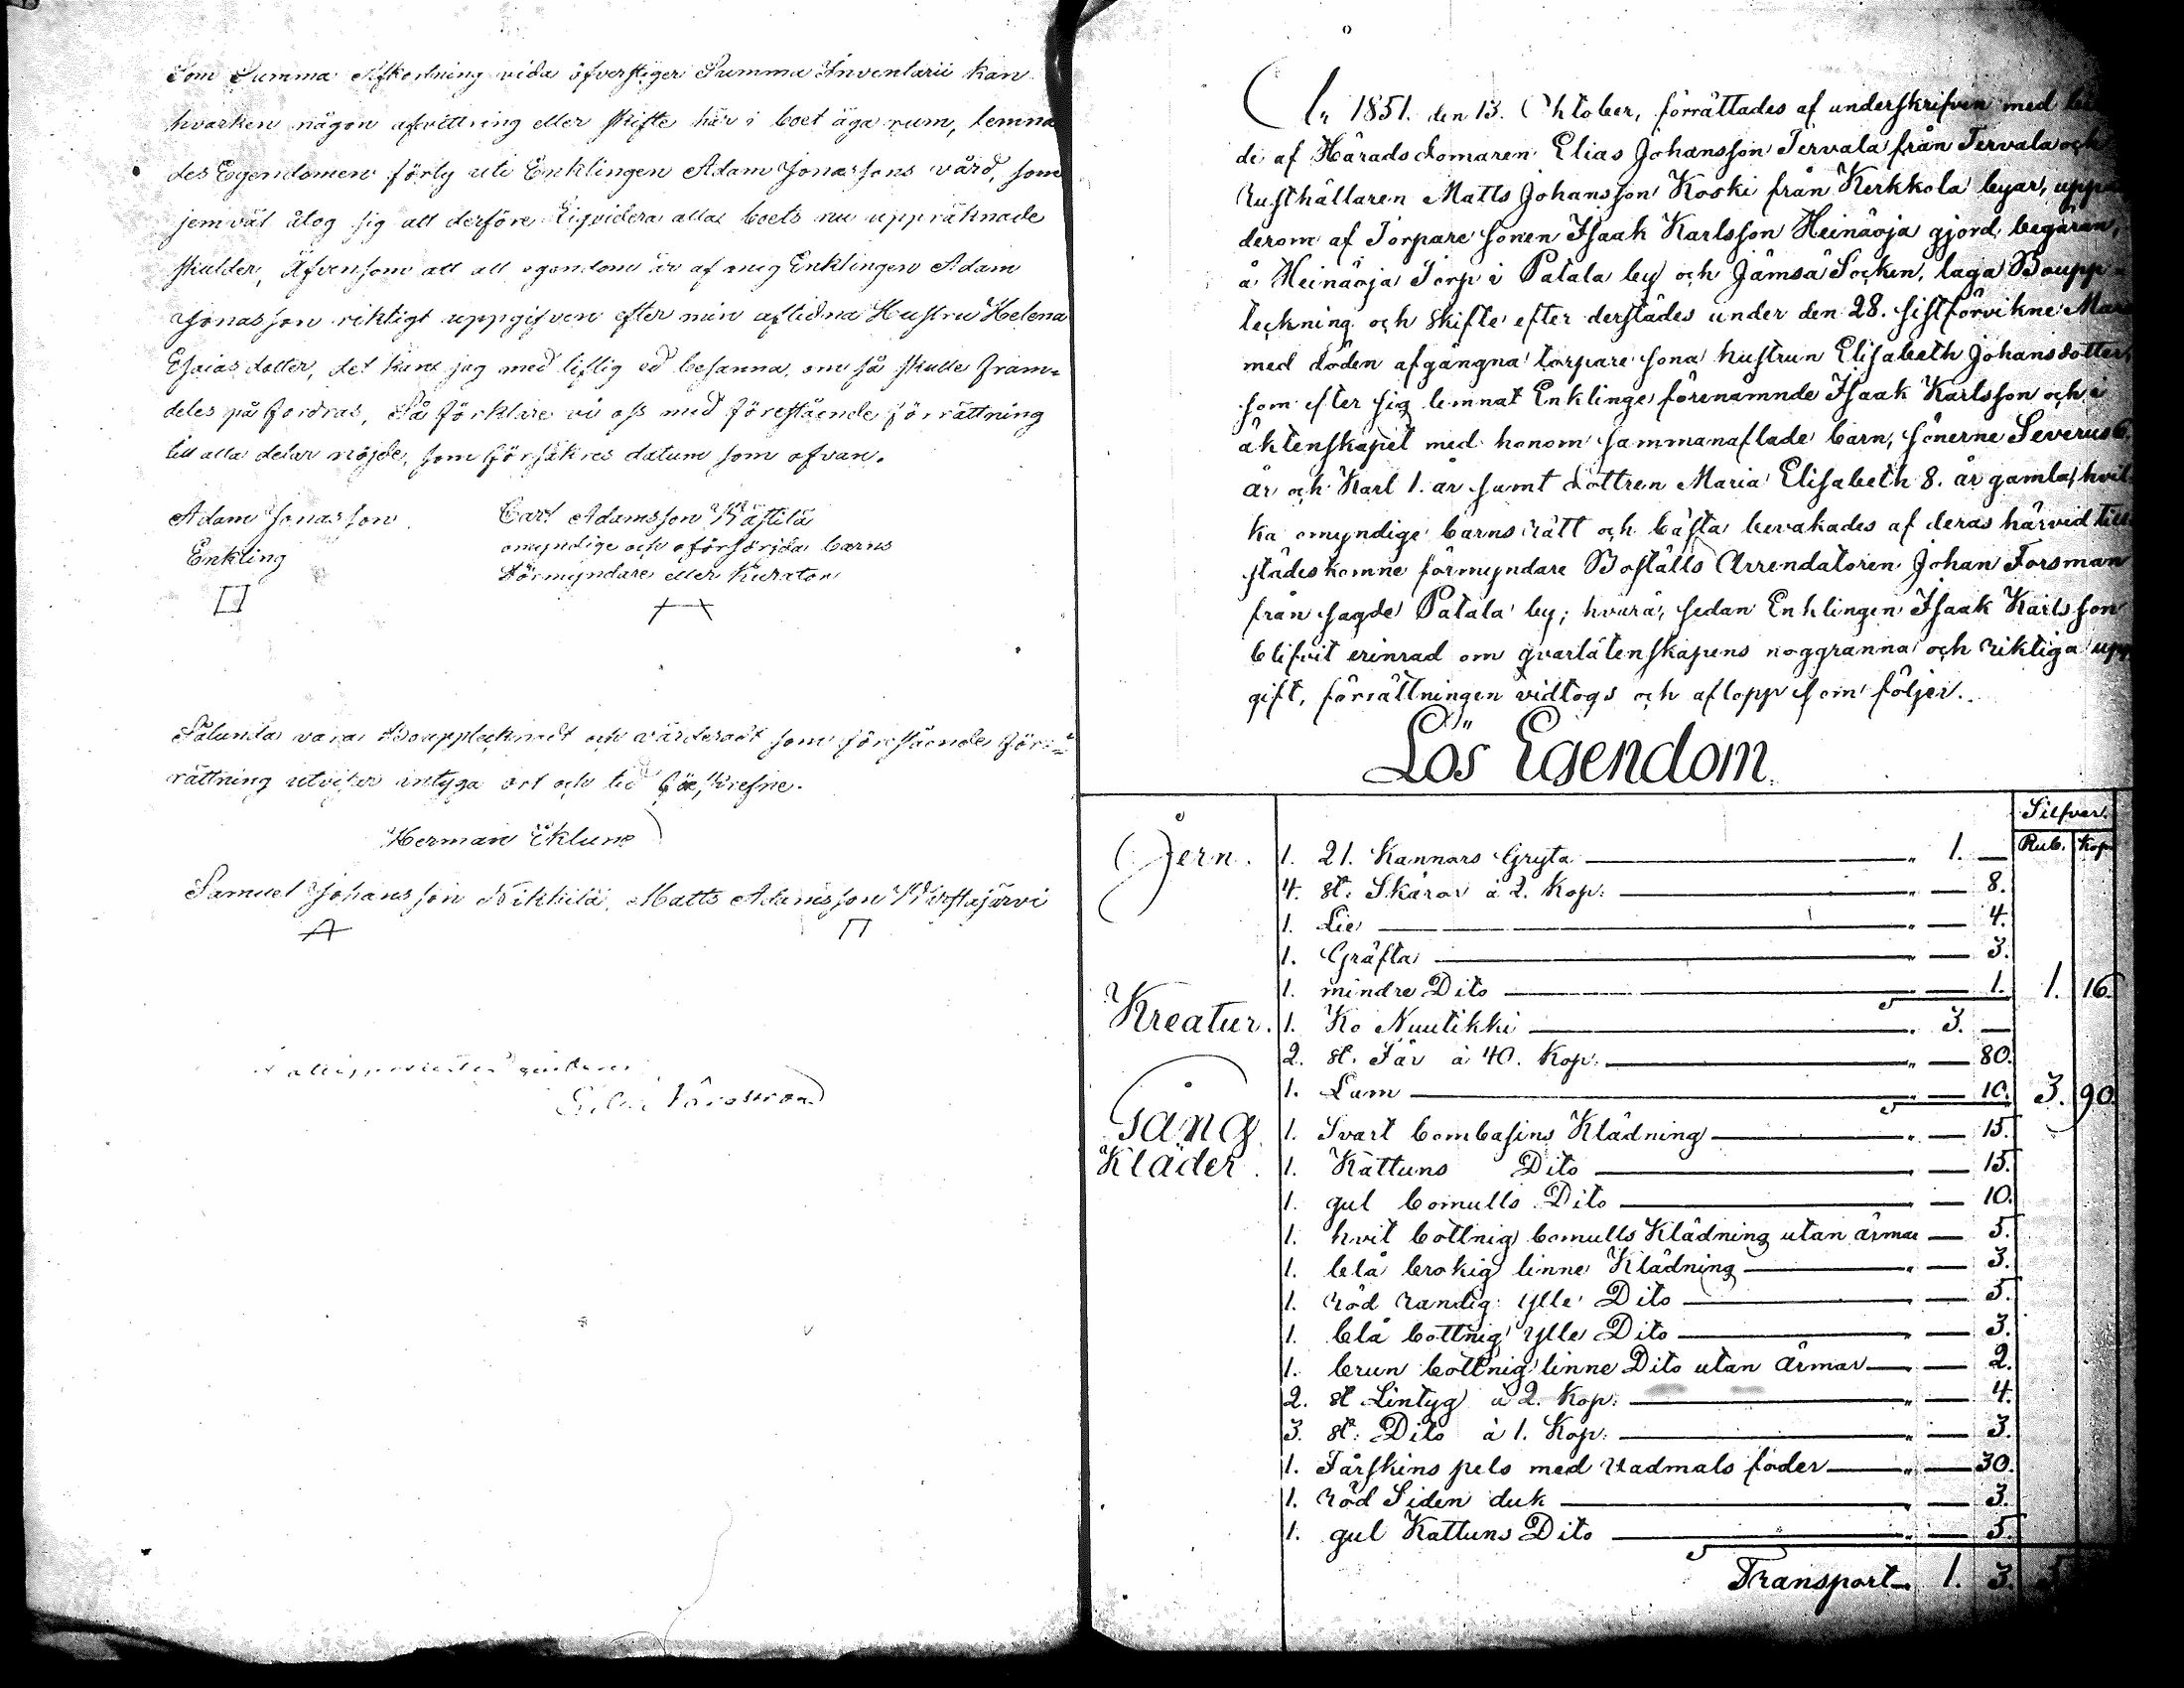 Som Summa Afkortning vida öfverstiger Summa Inventarii kan
hvarken någon afvittring eller skifte här i boet äga rum, lemna
des Egendomen förty uti Enklingen Adam Jonassons vård, som
jemväl åtog sig att derföre Liqvidera alla boets nu uppräknade
skulder, Äfvensom att all egendom är af mig Enklingen Adam
Jonasson riktigt uppgifven efter min aflidna Hustru Helena
Esaias dotter, det kan jag med liflig ed besanna, om så skulle fram=
deles på fordras, Så förklare vi oss med förestående förrättning
till alla delar nöjde, som försäkres datum som ofvan.
Adam Jonasson Carl Adamsson Wästilä
Enkling omyndige och oförsörjda barns
Förmyndare eller Kurator
Sålunda vara Bouppteknadt och värderadt som förestående för=
rättning utviser intyga ort och tid
Herman Eklund
Samuel Johansson Nikkilä, Matts Adamsson
År 1851. den 13. Oktober, förrättades af underskrifven med
de af Häradsdomaren Elias Johansson Tervala från Tervala och
Rusthållaren Matts Johansson Koski från Kerkkola byar, uppå
derom af Torpare sonen Isaak Karlsson Heinäoja gjord begäran,
å Heinäoja Torp i Patala by och Jämsä Socken, laga Boupp
teckning och skifte efter derstädes under den 28. sistförvikne
med döden afgångna torpare sona hustrun Elisabeth Johansdotter,
som efter sig lemnat Enklinge förenämnde Isaak Karlsson och i
äktenskapet med honom sammanaflade barn, sönerne Severus 6.
år och Karl 1. år samt dottren Maria Elisabeth 8. år gamla, hvil
ka omyndige barns rätt och bästa bevakades af deras härvid till
städeskomne förmyndare Boställs Arrendatoren Johan Forsman
från sagde Patala by; hvarå, sedan Enklingen Isaak Karlsson
blifvit erinrad om qvarlåtenskapens noggranna och riktiga upp
gift, förrättningen vidtogs och aflopp som följer.
Lös Egendom.
Silfver.
Rub. Kop
Jern. 1. 21. Kannors Gryta 1. —
4. st. Skäror à 2. Kop. 8.
1. Lie 4.
1. Gräfta 3.
1. mindre Dito 1. 1. 16.
Kreatur. 1. Ko Nuutikki 3. —
2. st. Får à 40. Kop. 80.
1. Lam 10. 3. 90.
Gång 1. Svart bombasins Klädning 15.
Kläder. 1. Kattuns Dito 15.
1. gul bomulls Dito 10.
1. hvit bottnig bomulls Klädning utan ärmar 5.
1. blå brokig linne Klädning 3.
1. röd randig ylle Dito 5.
1. blå bottnig ylle Dito 3.
1. brun bottnig linne Dito utan ärmar 2.
2. st Lintyg à 2. Kop. 4.
3. st. Dito à 1. Kop. 3.
1. Fårskins pels med vadmals foder 30.
1. röd Siden duk 3.
1. gul Kattuns Dito 5.
Transport 1. 3.